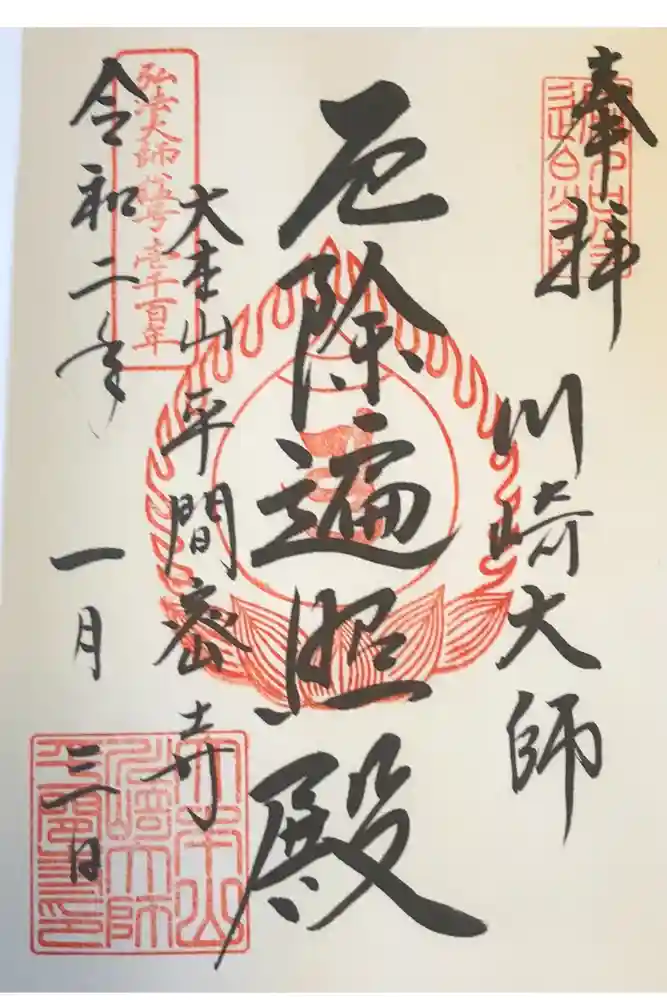 奉拝
川崎大師
厄除遍照殿
大本山
平間密寺
弘法大師
壱千百年
令和二年
一月
三日
川崎大師